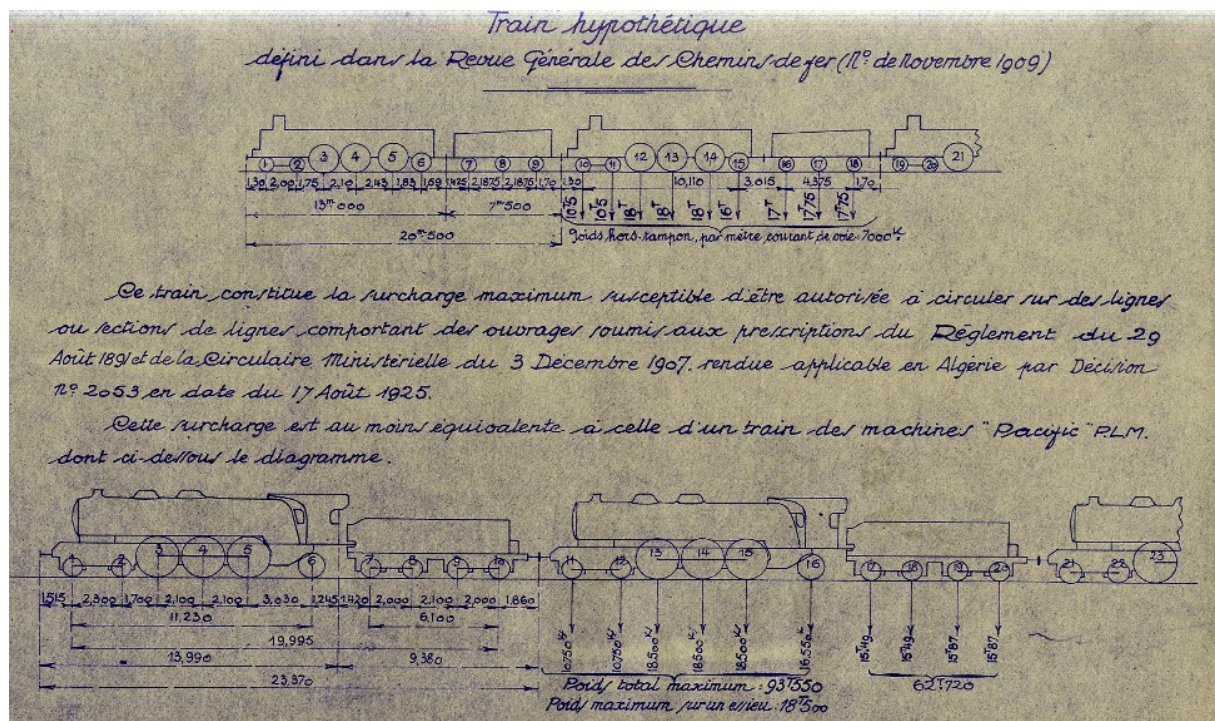 Train hypothétique
défini dans la Revue Générale des Chemins de fer (N° de Novembre 1909)
1 2 3 4 5 6 7 8 9 10 11 12 13 14 15 16 17 18 19 20 21
1,30 2,00 1,75 2,10 2,43 1,83 1,59 1,425 2,1875 2,1875 1,70 1,30 10,110 3,015 4,375 1,70
13m000 7m500 10T5 10T5 18T 18T 18T 16T 17T 17T75 17T75
20m500 Poids, hors-tampon, par mètre courant de voie: 7000K.
Ce train constitue la surcharge maximum susceptible d'être autorisée à circuler sur des lignes
ou sections de lignes comportant des ouvrages soumis aux prescriptions du Réglement du 29
Août 1891 et de la Circulaire Ministérielle du 3 Décembre 1907. rendue applicable en Algérie par Décision
N° 2053 en date du 17 Août 1925.
Cette surcharge est au moins équivalente à celle d'un train des machines "Pacific" P.L.M.
dont ci-dessous le diagramme.
1 2 3 4 5 6 7 8 9 10 11 12 13 14 15 16 17 18 19 20 21 22 23
1,515 2,300 1,700 2,100 2,100 3,030 1,245 1,420 2,000 2,100 2,000 1,860
11,230 6,100
19,995
13,990 9,380
10,750K 10,750K 18,500K 18,500K 18,500K 16,550K 15T49 15T49 15T87 15T87
23,370 Poids total maximum : 93T550 62T720
Poids maximum sur un essieu : 18T500